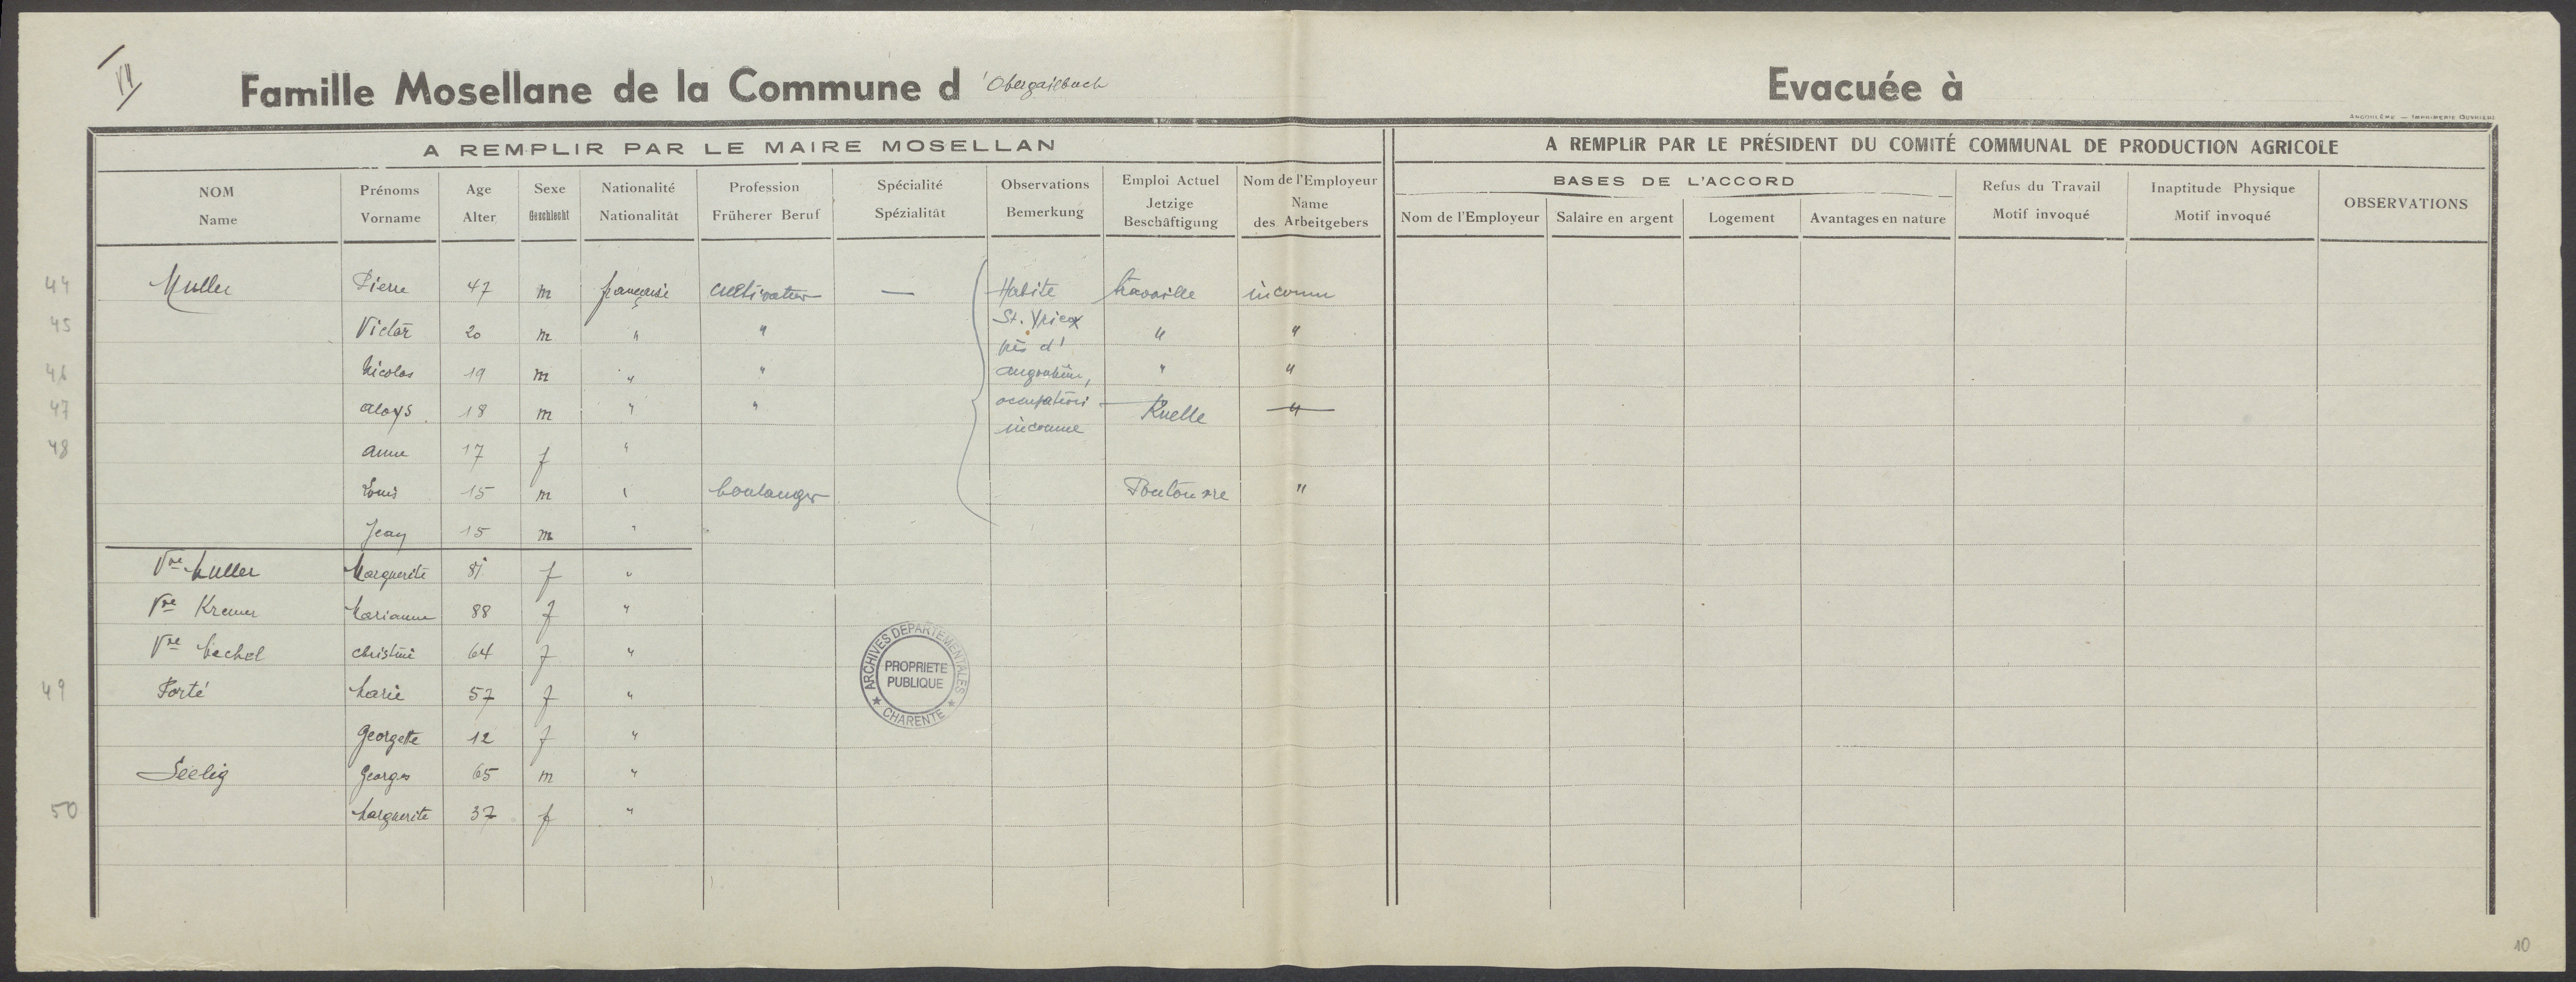 VII
Famille Mosellane de la Commune d 'Obergailbach
Evacuée à
ANGOULÊME — IMPRIMERIE OUVRIÈRE
A REMPLIR PAR LE MAIRE MOSELLAN
A REMPLIR PAR LE PRÉSIDENT DU COMITÉ COMMUNAL DE PRODUCTION AGRICOLE
NOM Name
Prénoms Vorname
Age Alter
Sexe Geschlecht
Nationalité Nationalität
Profession Früherer Beruf
Spécialité Spézialität
Observations Bemerkung
Emploi Actuel Jetzige Beschäftigung
Nom de l'Employeur Name des Arbeitgebers
BASES DE L'ACCORD
Nom de l'Employeur
Salaire en argent
Logement
Avantages en nature
Refus du Travail Motif invoqué
Inaptitude Physique Motif invoqué
OBSERVATIONS
44 Muller Pierre 47 m française cultivateur — Habite travaille inconnu
45 Victor 20 m " " St. Yrieix " "
près d'
46 Nicolas 19 m " " angoulême, " "
47 aloys 18 m " " occupations Ruelle "
inconnue
48 anne 17 f "
Louis 15 m " boulanger Pontouvre "
Jean 15 m "
Vve Muller Marguerite 81 f "
Vve Kremer Marianne 88 f "
Vve Machel christine 64 f "
49 Porté Marie 57 f "
Georgette 12 f "
Seelig Georges 65 m "
50 Marguerite 37 f "
ARCHIVES DEPARTEMENTALES
PROPRIETE
PUBLIQUE
★ CHARENTE ★
10